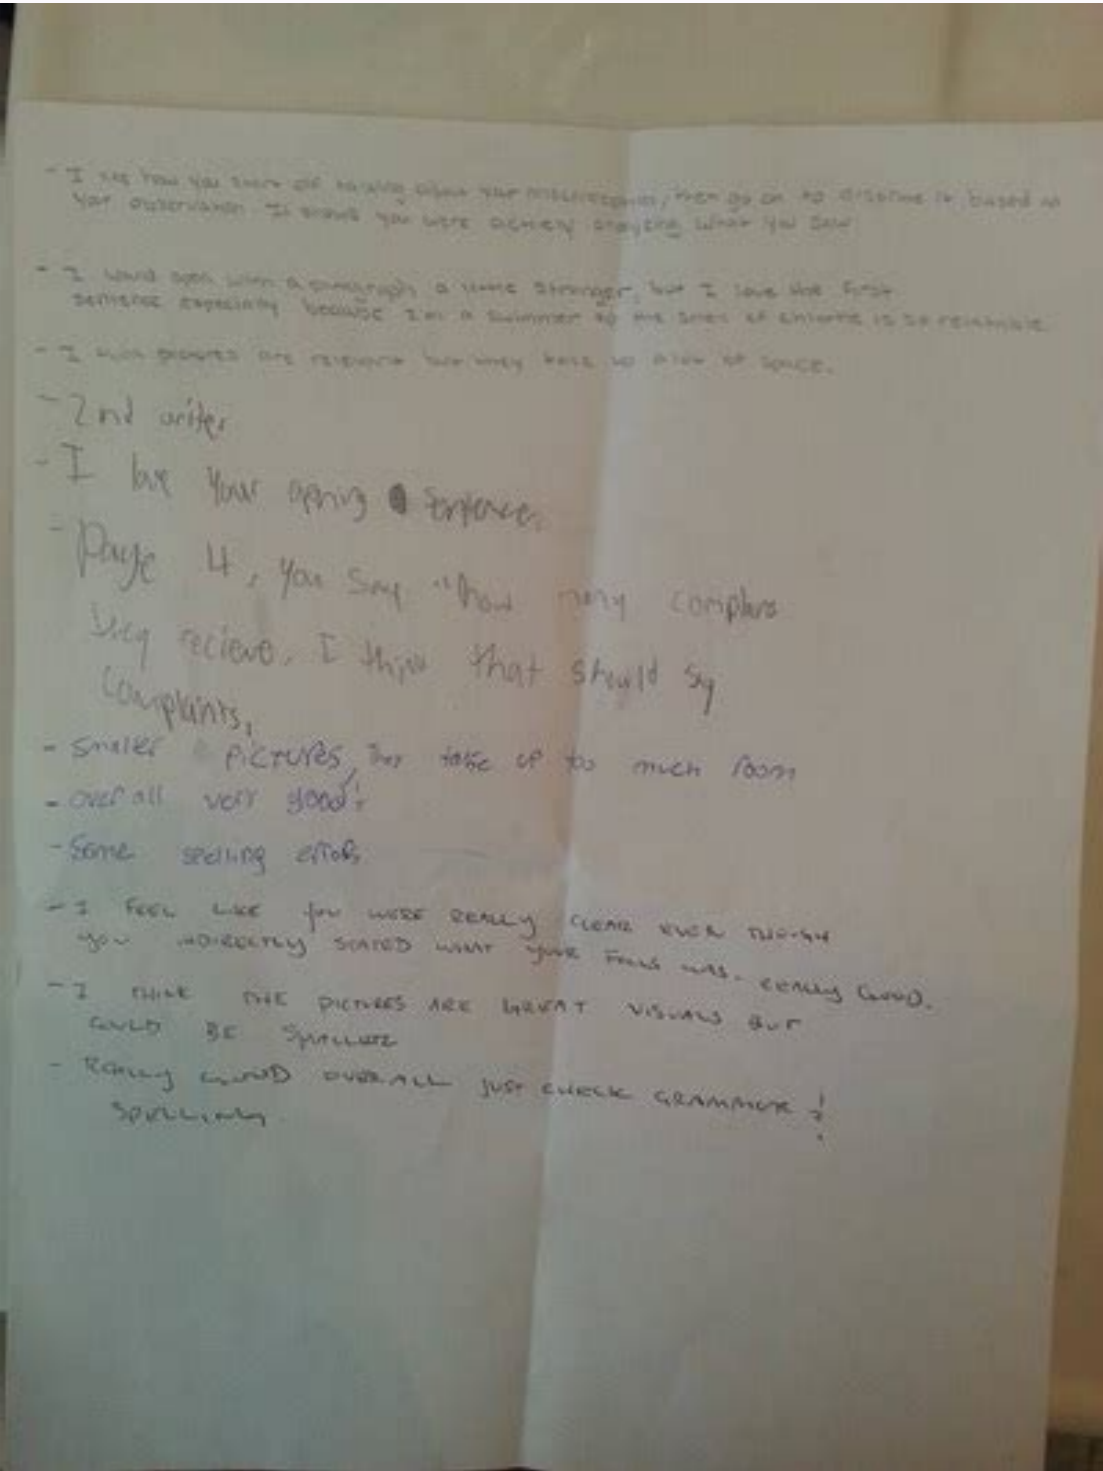 - I see how you start off talking about your misconception, then go on to disprove it based on
your observation. It shows you were actively analyzing what you saw
- I would open with a paragraph a little stronger, but I love the first
sentence especially because I'm a swimmer so the smell of chlorine is so relatable
- I think pictures are relevant but they take up a lot of space.
- 2nd writer
- I love your opening sentence.
- Page 4, you say "how many complans
they recieve. I think that should say
complaints.
- smaller pictures, they take up too much room
- over all very good!
- Some spelling errors
- I FEEL LIKE you WERE REALLY CLEAR EVEN THOUGH
you INDIRECTLY STATED WHAT YOUR FOCUS WAS. REALLY GOOD.
- I THINK THE PICTURES ARE GREAT VISUALS BUT
COULD BE SMALLER
- REALLY GOOD OVERALL JUST CHECK GRAMMER &
SPELLING.